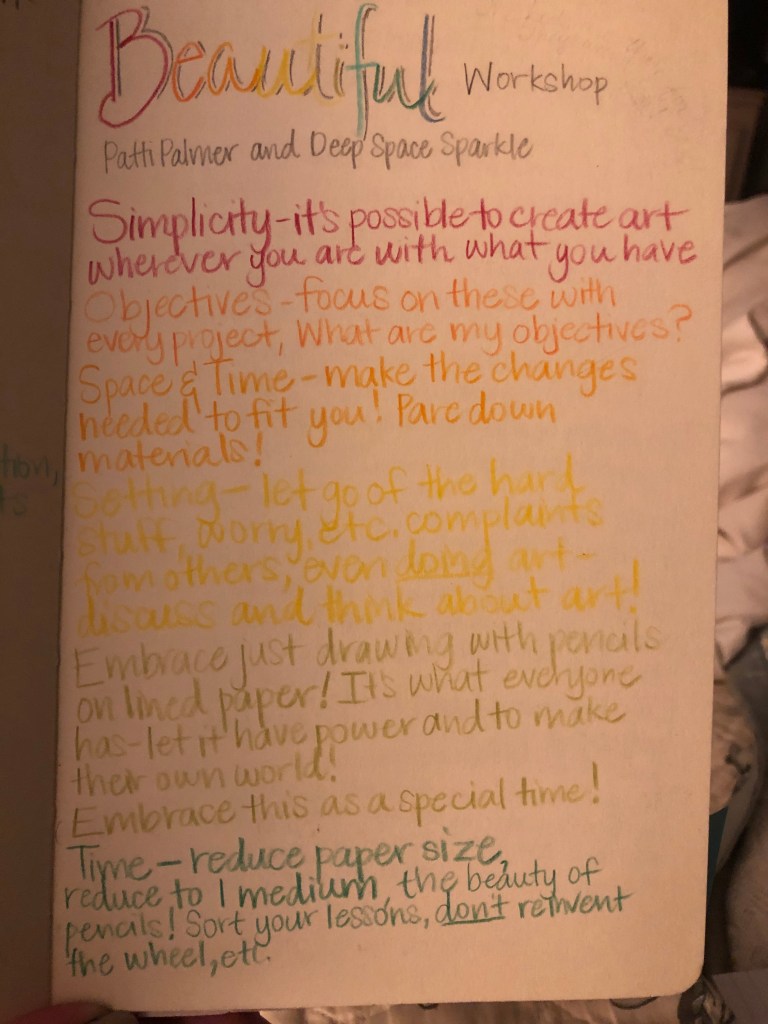 Beautiful Workshop
Patti Palmer and Deep Space Sparkle
Simplicity-it's possible to create art
wherever you are with what you have
Objectives-focus on these with
every project, What are my objectives?
Space & Time-make the changes
needed to fit you! Pare down
materials!
Setting-let go of the hard
stuff, worry, etc. complaints
from others, even doing art-
discuss and think about art!
Embrace just drawing with pencils
on lined paper! It's what everyone
has-let it have power and to make
their own world!
Embrace this as a special time!
Time-reduce paper size,
reduce to 1 medium, the beauty of
pencils! Sort your lessons, don't reinvent
the wheel, etc.